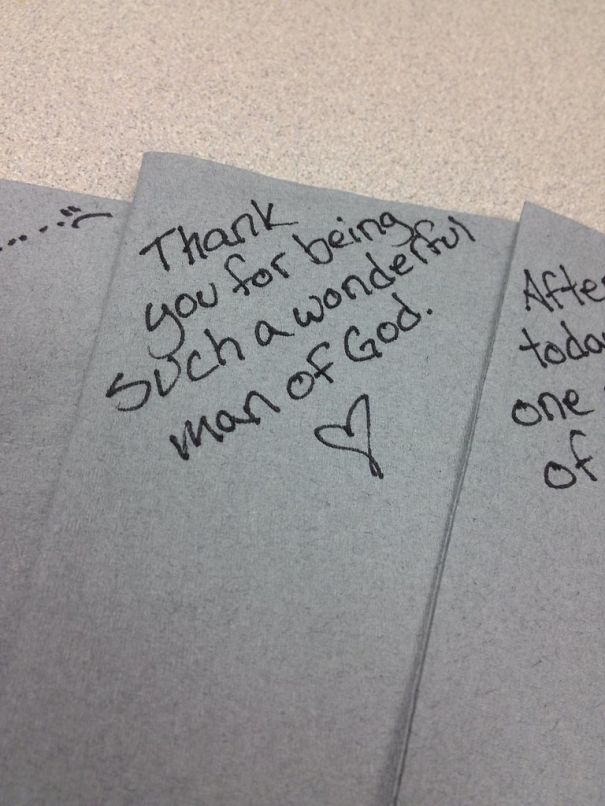 Thank
you for being
such a wonderful
man of God.
♡
After
today
one
of